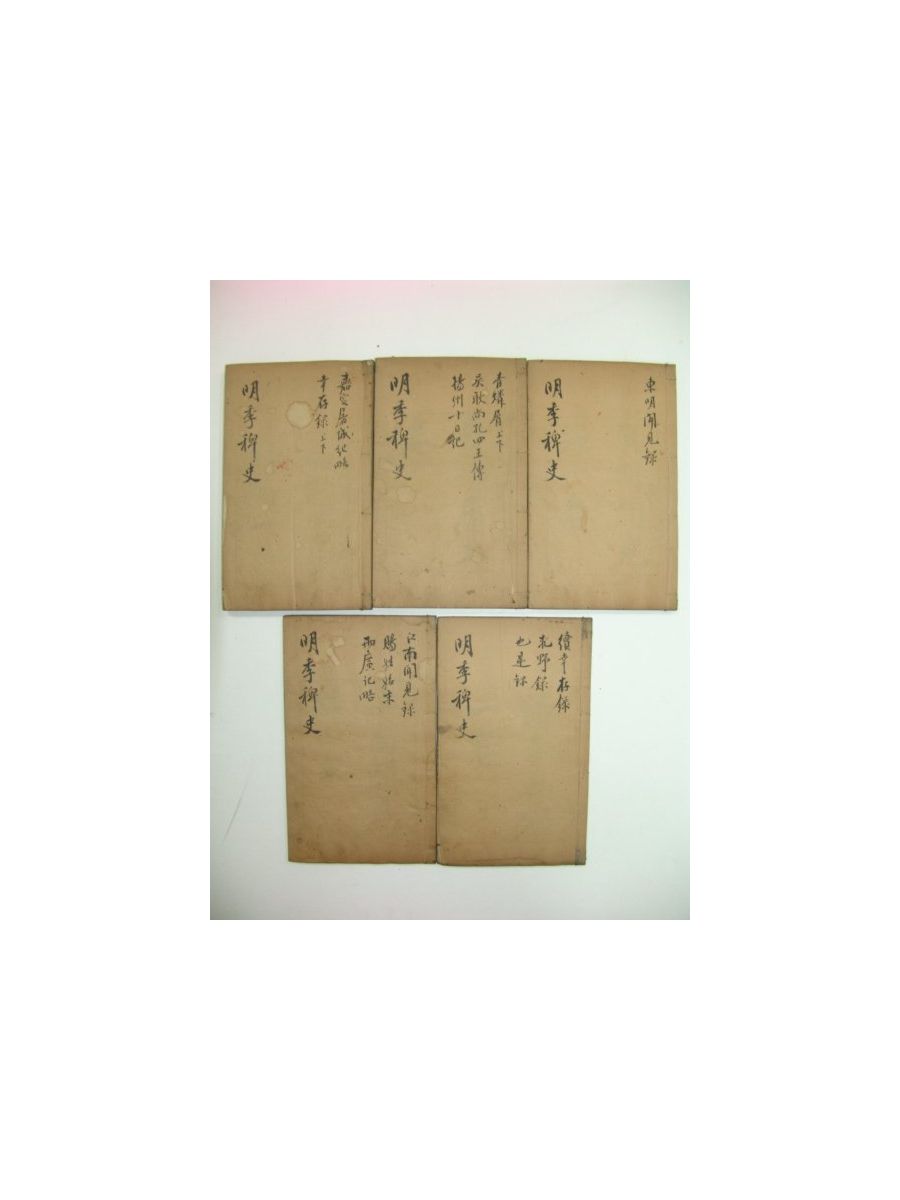 東明聞見録
明季稗史
青燐屑上下
吳耿尚孔四王傳
揚州十日紀
明季稗史
嘉定屠城紀略
幸存録上下
明季稗史
續幸存録
求野録
也是録
明季稗史
江南聞見録
賜姓始末
兩廣記略
明季稗史